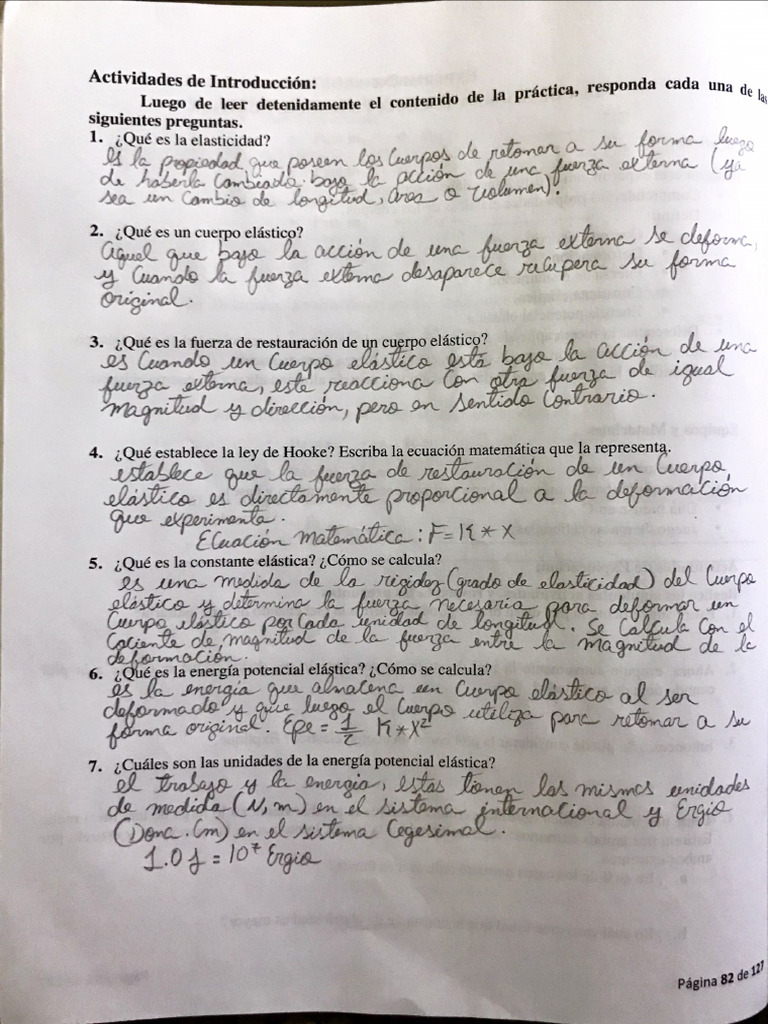 Actividades de Introducción:
Luego de leer detenidamente el contenido de la práctica, responda cada una de las
siguientes preguntas.
1. ¿Qué es la elasticidad?
es la propiedad que poseen los cuerpos de retomar a su forma luego
de haberla cambiado bajo la acción de una fuerza externa (ya
sea un cambio de longitud, área o volumen).
2. ¿Qué es un cuerpo elástico?
Aquel que bajo la acción de una fuerza externa se deforma,
y cuando la fuerza externa desaparece recupera su forma
original.
3. ¿Qué es la fuerza de restauración de un cuerpo elástico?
es cuando un cuerpo elástico está bajo la acción de una
fuerza externa, este reacciona con otra fuerza de igual
magnitud y dirección, pero en sentido contrario.
4. ¿Qué establece la ley de Hooke? Escriba la ecuación matemática que la representa.
establece que la fuerza de restauración de un cuerpo
elástico es directamente proporcional a la deformación
que experimenta.
Ecuación Matemática: F=K*X
5. ¿Qué es la constante elástica? ¿Cómo se calcula?
es una medida de la rigidez (grado de elasticidad) del cuerpo
elástico y determina la fuerza necesaria para deformar un
cuerpo elástico por cada unidad de longitud. Se calcula con el
cociente de magnitud de la fuerza entre la magnitud de la
deformación.
6. ¿Qué es la energía potencial elástica? ¿Cómo se calcula?
es la energía que almacena un cuerpo elástico al ser
deformado y que luego el cuerpo utiliza para retomar a su
forma original. Epe = 1/2 K*X²
7. ¿Cuáles son las unidades de la energía potencial elástica?
el trabajo y la energía, estas tienen las mismas unidades
de medida (N, m) en el sistema internacional y Ergio
(Dona.Cm) en el sistema Cegesimal.
1.0 J = 10⁷ Ergio
Página 82 de 127